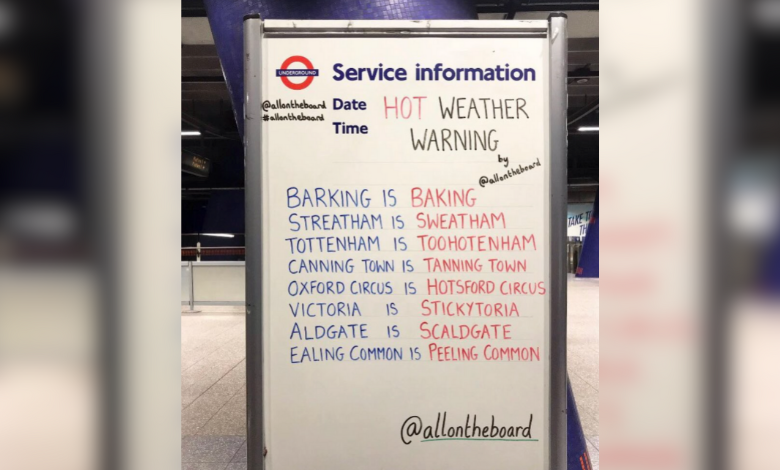 UNDERGROUND
Service information
@allontheboard
#allontheboard
Date
Time
HOT WEATHER
WARNING
by
@allontheboard
BARKING IS BAKING
STREATHAM IS SWEATHAM
TOTTENHAM IS TOOHOTENHAM
CANNING TOWN IS TANNING TOWN
OXFORD CIRCUS IS HOTSFORD CIRCUS
VICTORIA IS STICKYTORIA
ALDGATE IS SCALDGATE
EALING COMMON IS PEELING COMMON
@allontheboard
TAKE T